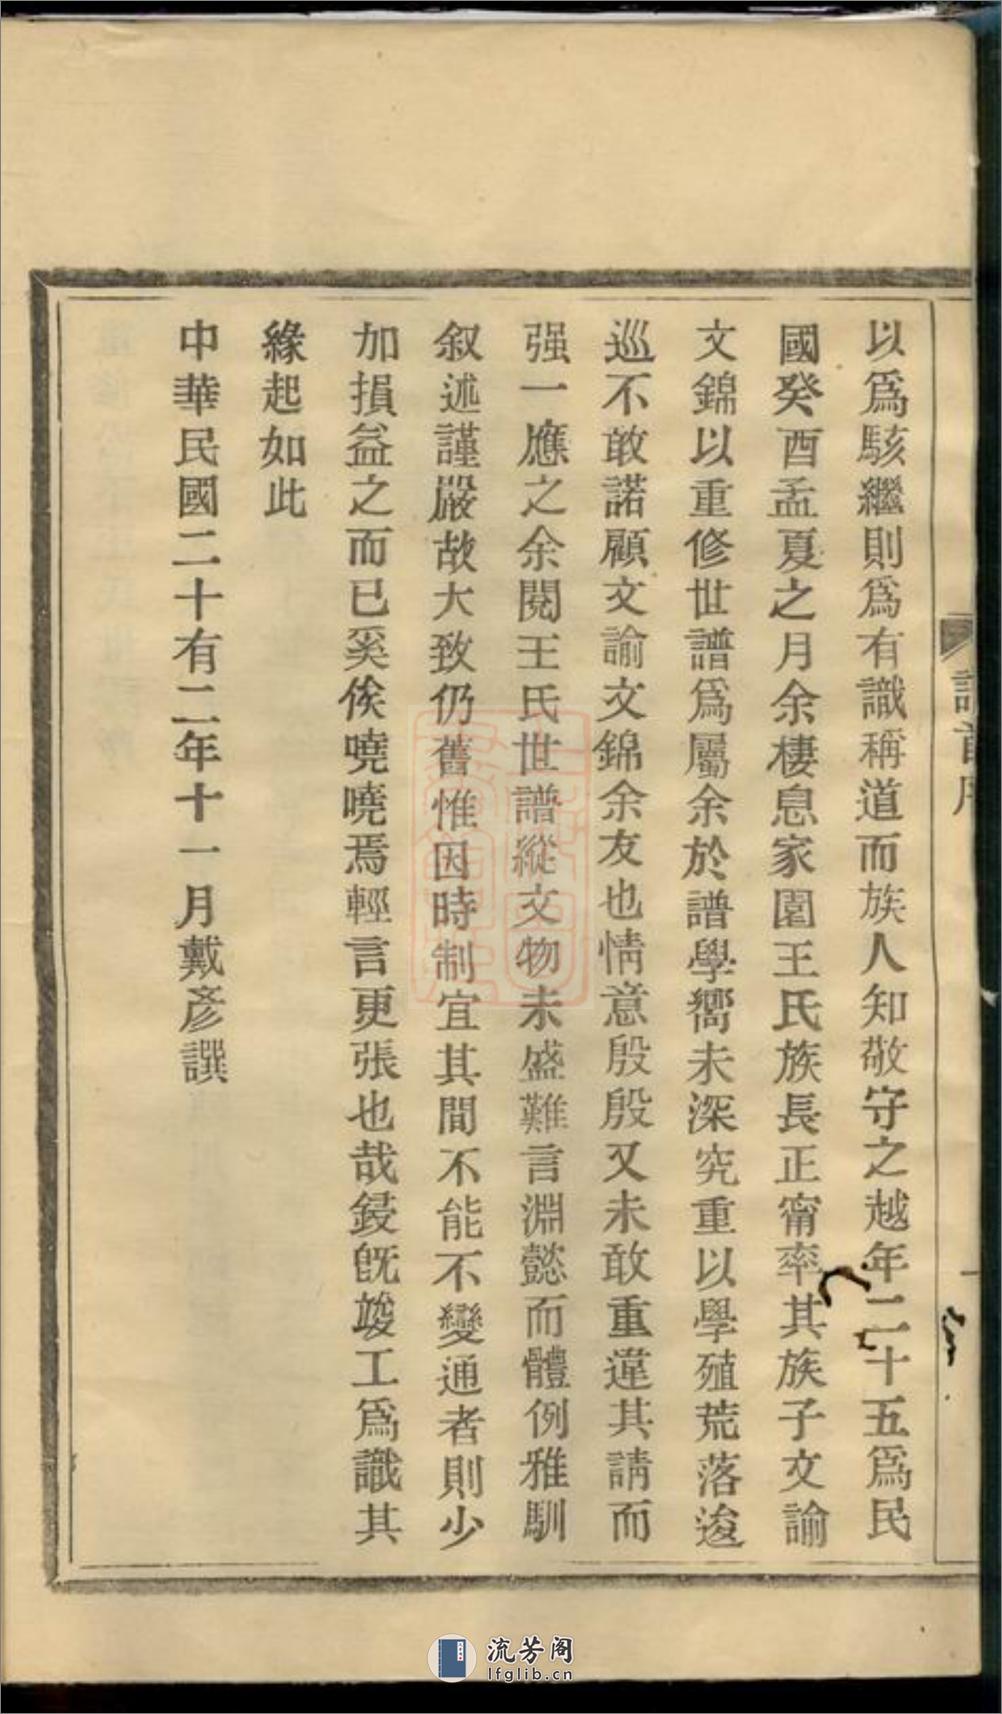 以爲駭繼則爲有識稱道而族人知敬守之越年二十五爲民
國癸酉孟夏之月余棲息家園王氏族長正甯率其族子文諭
文錦以重修世譜爲屬余於譜學嚮未深究重以學殖荒落逡
巡不敢諾顧文諭文錦余友也情意殷殷又未敢重違其請而
强一應之余閱王氏世譜縱文物未盛難言淵懿而體例雅馴
叙述謹嚴故大致仍舊惟因時制宜其間不能不變通者則少
加損益之而已奚俟嘵嘵焉輕言更張也哉鋟既竣工爲識其
緣起如此
中華民國二十有二年十一月戴彥譔
流芳阁
lfglib.cn